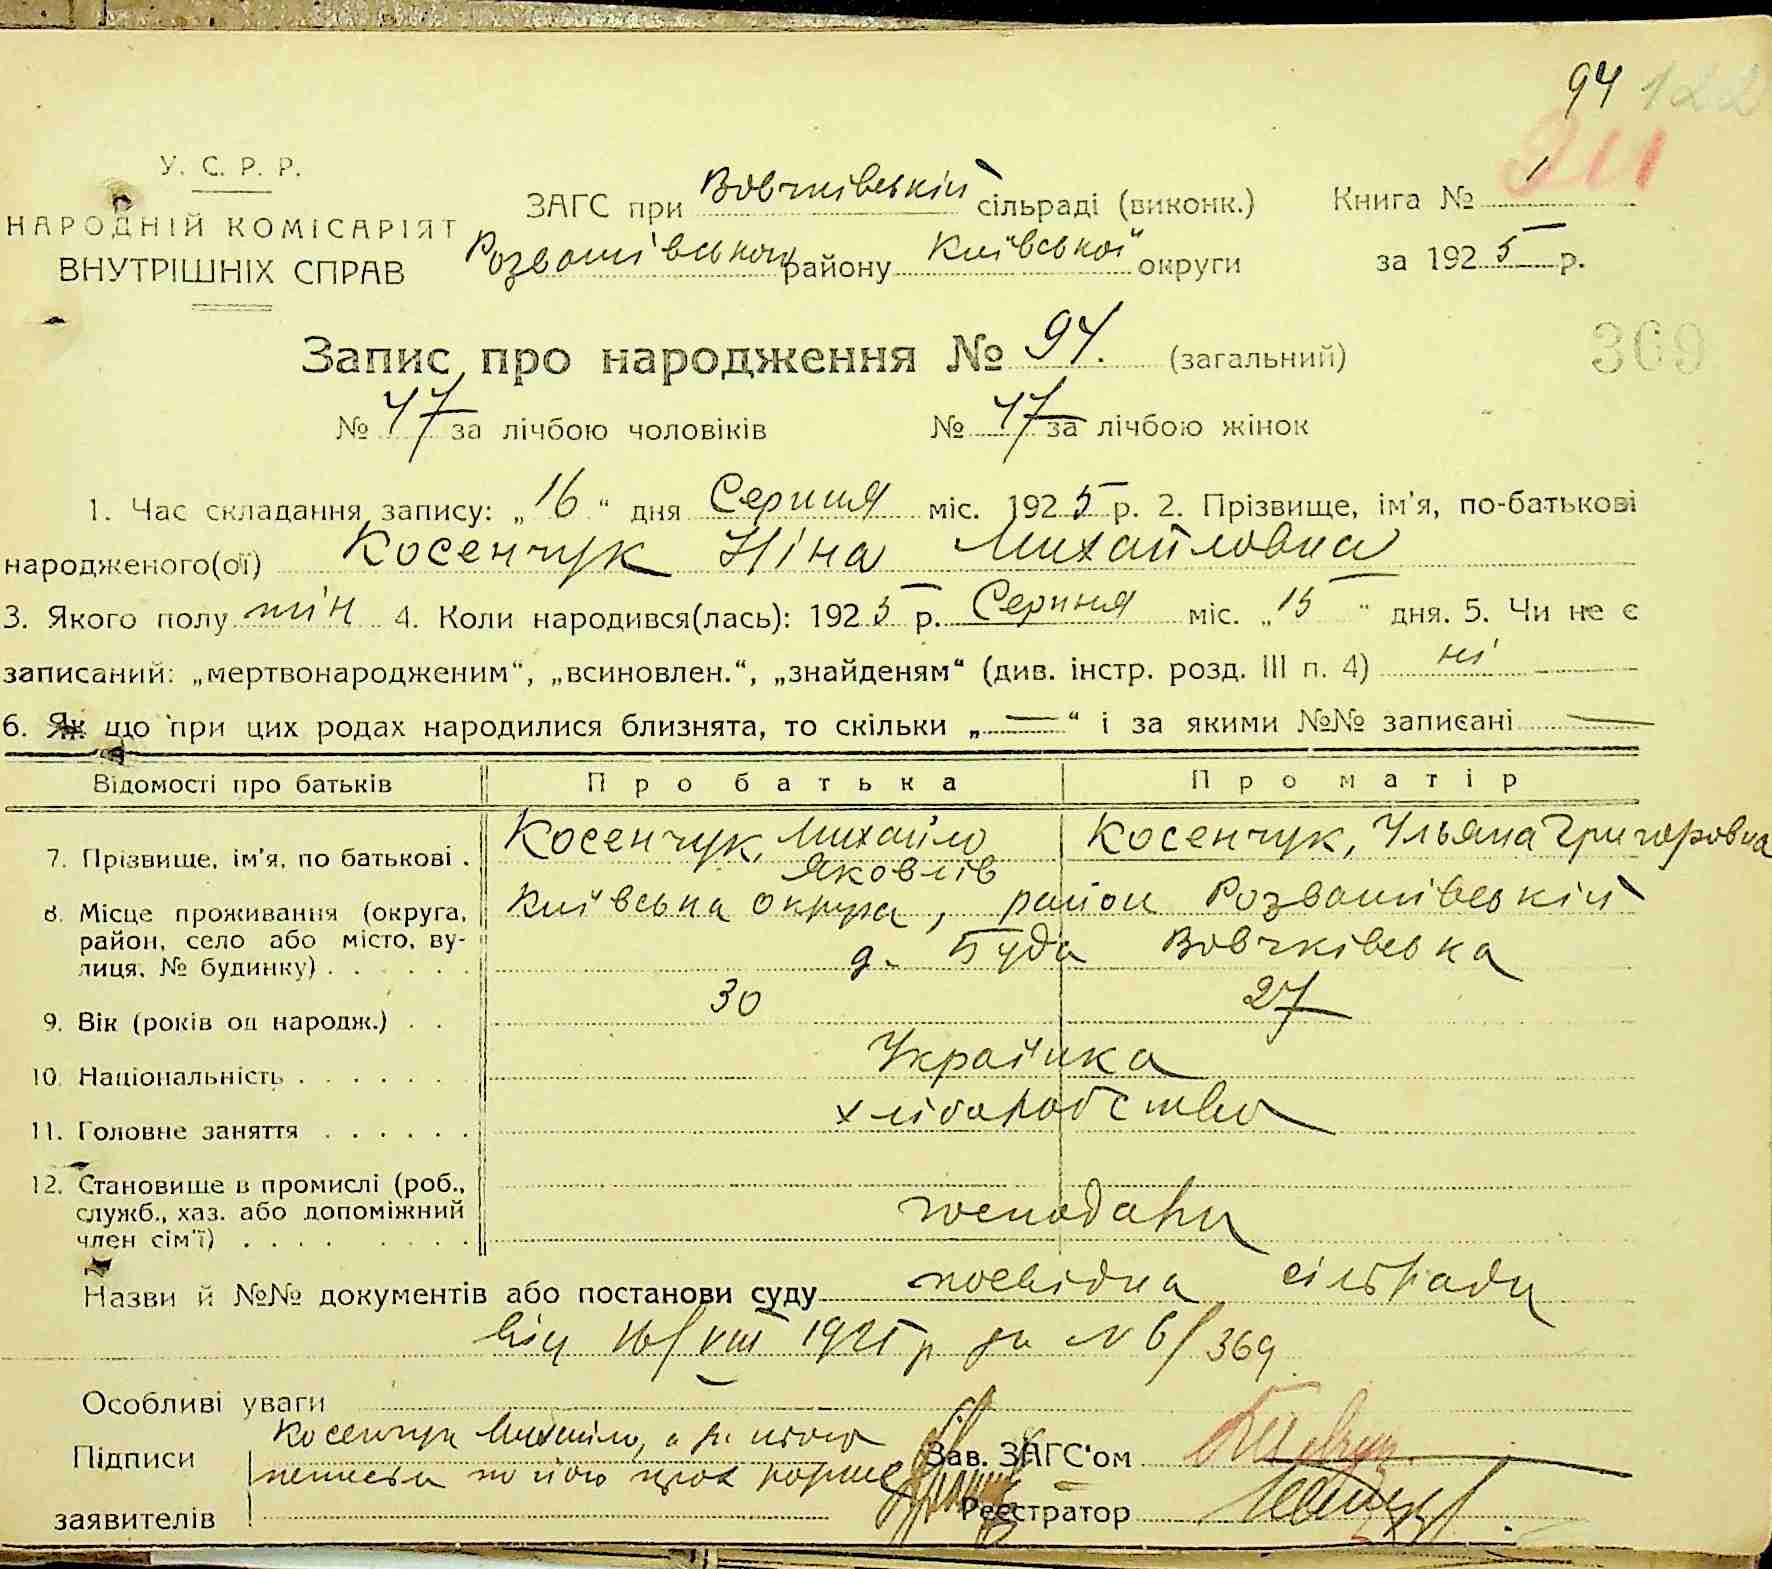 94 122
211
У. С. Р. Р.
НАРОДНІЙ КОМІСАРІЯТ
ВНУТРІШНІХ СПРАВ
ЗАГС при Вовчківській сільраді (виконк.) Книга № 1
Розважівського району Київської округи за 1925 р.
Запис про народження № 94. (загальний)
369
№ 47 за лічбою чоловіків № 47 за лічбою жінок
1. Час складання запису: „16“ дня Серпня міс. 1925 р. 2. Прізвище, ім'я, по-батькові
народженого(ої) Косенчук Ніна Михайловна
3. Якого полу жін 4. Коли народився(лась): 1925 р. Серпня міс. „15“ дня. 5. Чи не є
записаний: „мертвонародженим“, „всиновлен.“, „знайденям“ (див. інстр. розд. III п. 4) ні
6. Як що при цих родах народилися близнята, то скільки „—“ і за якими №№ записані —
Відомості про батьків Про батька Про матір
7. Прізвище, ім'я, по батькові . Косенчук, Михайло Яковлів Косенчук, Ульяна Григоровна
8. Місце проживання (округа, Київська округа, район Розважівській
район, село або місто, ву- д. Буда Вовчківська
лиця, № будинку) . . . . . .
9. Вік (років од народж.) . . 30 27
10. Національність . . . . . . . Українка
11. Головне заняття . . . . . . хліборобство
12. Становище в промислі (роб.,
служб., хаз. або допоміжний господарі
член сім'ї) . . . . . . . . .
Назви й №№ документів або постанови суду посвідка сільради
від 16/VIII 1925 р за № 6/369
Особливі уваги
Підписи Косенчук Михайло, а за його Зав. ЗАГС'ом
заявителів по його Реєстратор